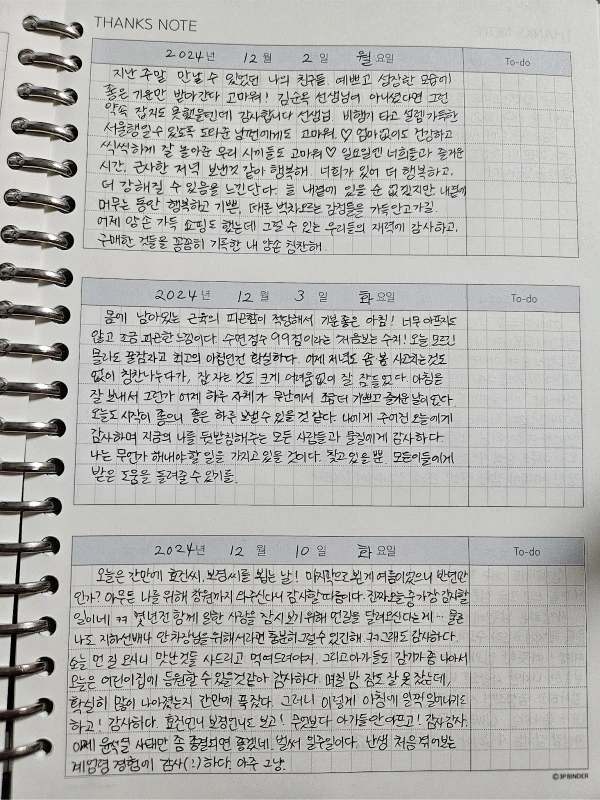 THANKS NOTE
2024년 12월 2일 월요일 To-do
지난 주말 만날 수 있었던 나의 친구들. 예쁘고 성장한 모습에
좋은 기운만 받아간다 고마워! 김순옥 선생님이 아니었다면 그런
약속 잡지도 못했을텐데 감사합니다 선생님. 비행기 타고 설렘 가득한
서울행일 수 있도록 도와준 남편에게도 고마워♡ 엄마 없이도 건강하고
씩씩하게 잘 놀아준 우리 새끼들도 고마워♡ 일요일엔 너희들과 즐거운
시간, 근사한 저녁 보낸것 같아 행복해. 너희가 있어 더 행복하고,
더 강해질 수 있음을 느낀단다. 늘 내곁에 있을 순 없겠지만 내곁에
머무는 동안 행복하고 기쁜, 때론 벅차오르는 감정들을 가득안고가길.
어제 양손 가득 쇼핑도 했는데 그럴 수 있는 우리들의 재력에 감사하고,
구매한 것들을 꼼꼼히 기록한 내 양손 칭찬해.
2024년 12월 3일 화요일 To-do
몸에 남아있는 근육의 피곤함이 적당해서 기분좋은 아침! 너무 아프지도
않고 조금 피곤한 느낌이다. 수면점수 99점이라는 처음보는 수치! 오늘 모르긴
몰라도 꿀잠자고 최고의 아침인건 확실하다. 어제 저녁도 사고치는것도
없이 칭찬나누다가, 잠 자는 것도 크게 어려움없이 잘 잠들었다. 아침을
잘 보내서 그런가 어제 하루 자체가 무난해서 조금 더 기쁘고 즐거운 날이었다.
오늘도 시작이 좋으니 좋은 하루 보낼 수 있을 것 같다. 나에게 주어진 오늘에게
감사하며 지금의 나를 뒷받침해주는 모든 사람들과 물질에게 감사하다.
나는 무언가 해내야할 일을 가지고 있을 것이다. 찾고 있을 뿐. 모든이들에게
받은 도움을 돌려줄 수 있기를.
2024년 12월 10일 화요일 To-do
오늘은 간만에 효진씨, 보경씨를 뵙는 날! 마지막으로 뵌게 여름이었으니 반년만
인가? 아무튼 나를 위해 창원까지 와주신다니 감사할따름이다. 진짜 오늘 중 가장 감사할
일이네 ㅋㅋ 몇년전 함께 일한 사람을 잠시 보기위해 먼길을 달려오신다는게… 물론
나도 지하선배나 안차장님을 위해서라면 충분히 그럴 수 있긴해 ㅋㅋ 그래도 감사하다.
오늘 먼 길 오시니 맛난것을 사드리고 먹여드려야지. 그리고 아가들도 감기가 좀 나아서
오늘은 어린이집에 등원할 수 있을것같아 감사하다. 며칠 밤 잠도 잘 못잤는데,
확실히 많이 나아졌는지 간만에 푹잤다. 그러니 이렇게 아침에 일찍 일어나기도
하고! 감사하다. 효진언니 보경언니도 보고! 무엇보다 아가들 안아프고! 감사 감사.
이제 윤석열 사태만 좀 종결되면 좋겠네. 벌써 일주일이다. 난생 처음 겪어보는
계엄령 경험에 감사(?)하다. 아주 그냥.
©3P BINDER